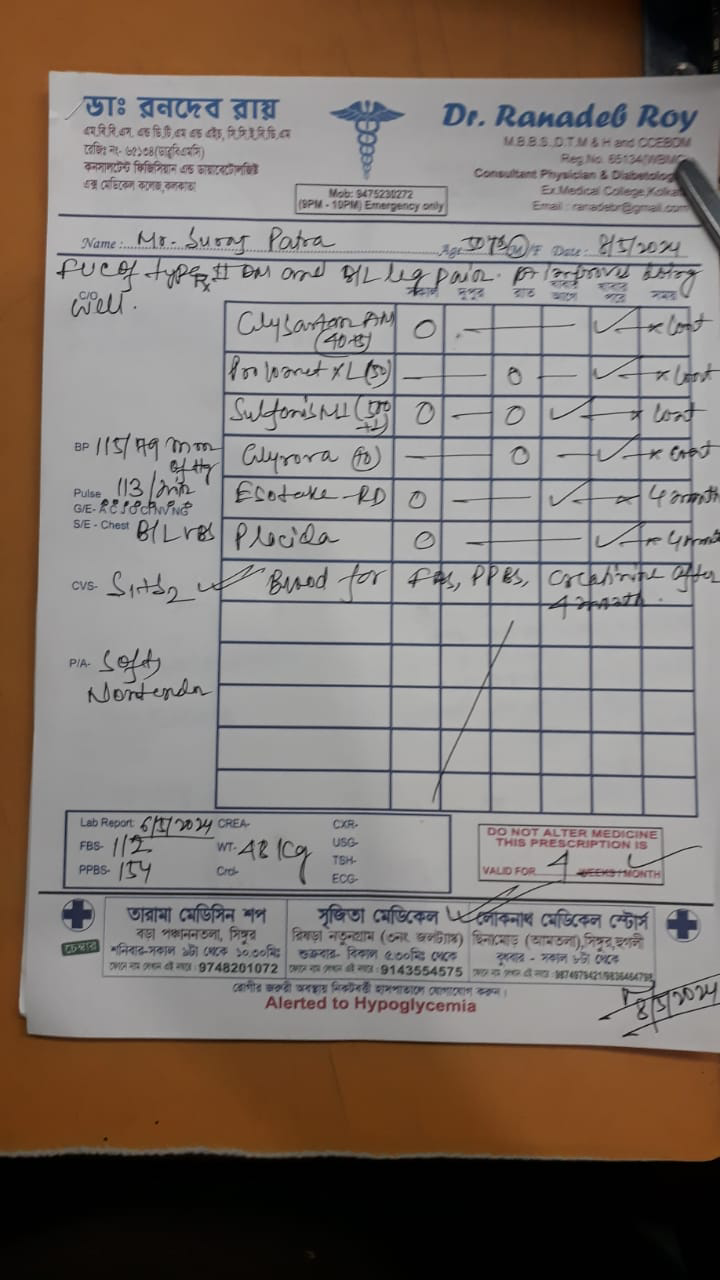 ডাঃ রনদেব রায়
এম.বি.বি.এস, এন্ড ডি.টি.এম এন্ড এইচ, সি.সি.ই.বি.ডি.এম
রেজিঃ নং- ৬৫১৩৪(ডাব্লুবিএমসি)
কনসালটেন্ট ফিজিসিয়ান এন্ড ডায়াবেটোলজিষ্ট
এক্স মেডিকেল কলেজ, কলকাতা
Mob: 9475230272
(9PM - 10PM) Emergency only
Dr. Ranadeb Roy
M.B.B.S., D.T.M & H and CCEBDM
Reg.No. 65134(WBMC
Consultant Physician & Diabetolog
Ex.Medical College, Kolkat
Email : ranadebr@gmail.com
Name : Mr. Suraj Patra Age M/F Date : 8/5/2024
FUC of type II DM and B/L leg pain. Pt improves doing
C/O well.
Rx
সকাল দুপুর রাত খাবার আগে খাবার পরে সময়
Glysartan AM (40+5) O x Cont
XL (50) O x Cont
M1 (500 +1) O O x Cont
(10) O x Cont
Esotake - RD O x 4 month
Placida O x 4 month
Blood for FBS, PPBS, Creatinine after
4 month.
BP 115/79 mm of Hg
Pulse 113/min
G/E-
S/E - Chest B/L VBS
CVS- S1+S2
P/A- Soft,
Nontender
Lab Report: 6/5/2024 CREA- CXR-
FBS- 112 WT- 48 Kg USG-
TSH-
PPBS- 154 Crcl- ECG-
DO NOT ALTER MEDICINE
THIS PRESCRIPTION IS
VALID FOR 4 WEEKS / MONTH
তারামা মেডিসিন শপ
বড়া পঞ্চাননতলা, সিঙ্গুর
চেম্বার
শনিবার-সকাল ৯টা থেকে ১০.৩০মিঃ
ফোনে নাম লেখান এই নাম্বারে : 9748201072
সৃজিতা মেডিকেল
রিষড়া নতুনগ্রাম (৩নং জলট্যাঙ্ক)
শুক্রবার- বিকাল ৫.৩০মিঃ থেকে
ফোনে নাম লেখান এই নাম্বারে : 9143554575
লোকনাথ মেডিকেল স্টোর্স
ছিনামোড় (আমতলা), সিঙ্গুর, হুগলী
বুধবার - সকাল ৮টা থেকে
রোগীর জরুরী অবস্থায় নিকটবর্তী হাসপাতালে যোগাযোগ করুন।
Alerted to Hypoglycemia
8/5/2024